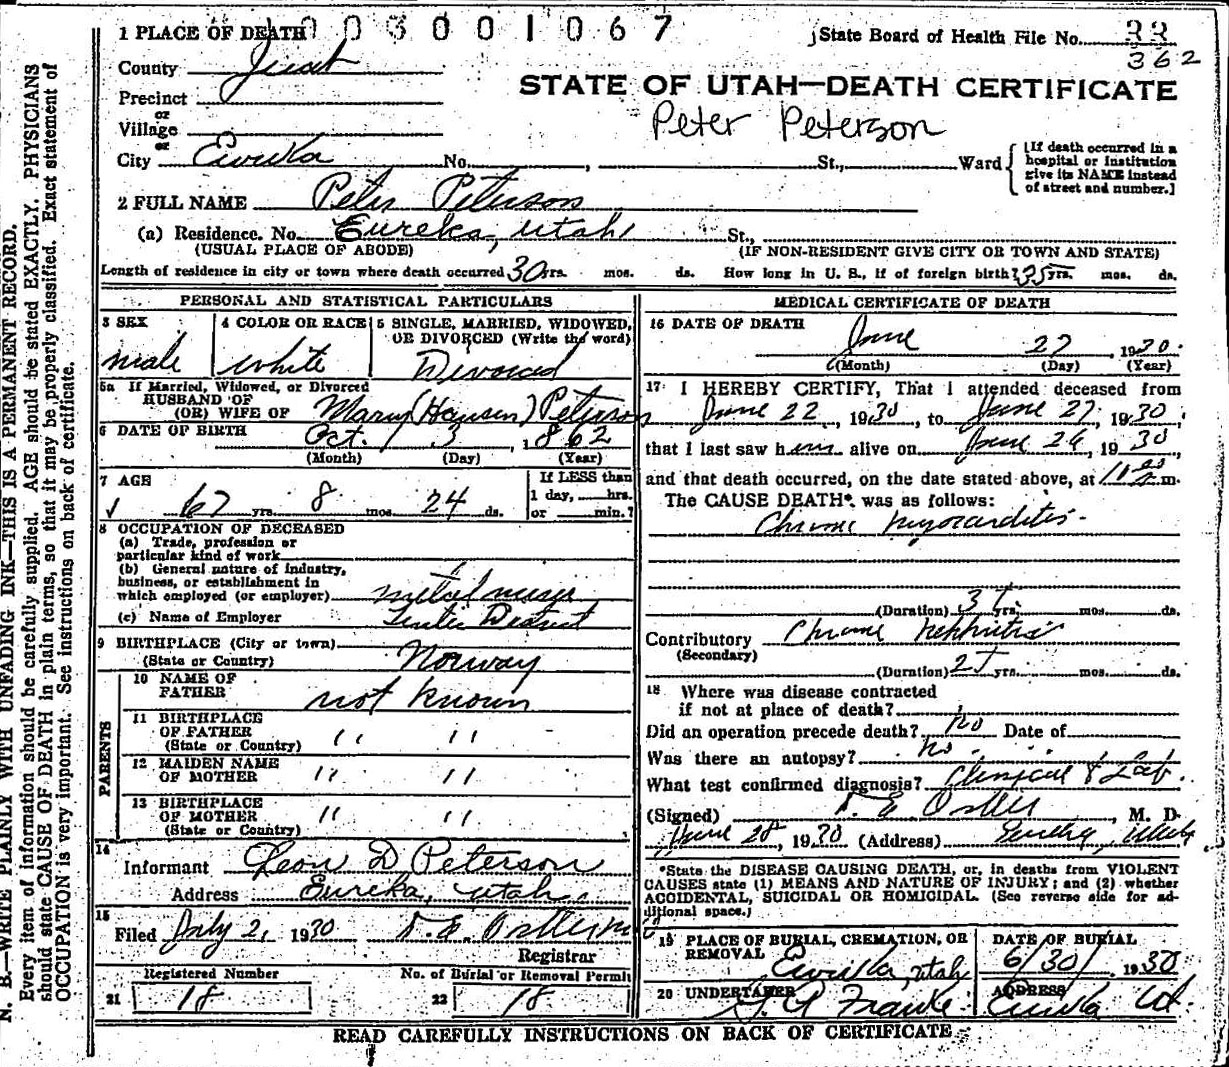 1003001067
1 PLACE OF DEATH
State Board of Health File No. 33
362
County Juab
STATE OF UTAH—DEATH CERTIFICATE
Precinct
or
Village
Peter Peterson
or
City Eureka No. , St., Ward
[If death occurred in a hospital or Institution give its NAME instead of street and number.]
2 FULL NAME Peter Peterson
(a) Residence. No. Eureka, Utah St.,
(USUAL PLACE OF ABODE) (IF NON-RESIDENT GIVE CITY OR TOWN AND STATE)
Length of residence in city or town where death occurred 30 yrs. mos. ds. How long in U. S., if of foreign birth? 35 yrs. mos. ds.
PERSONAL AND STATISTICAL PARTICULARS
3 SEX
male
4 COLOR OR RACE
white
5 SINGLE, MARRIED, WIDOWED,
OR DIVORCED (Write the word)
Divorced
5a If Married, Widowed, or Divorced
HUSBAND OF
(OR) WIFE OF Mary (Hansen) Peterson
6 DATE OF BIRTH Oct. 3 1862
(Month) (Day) (Year)
7 AGE
67 yrs. 8 mos. 24 ds.
If LESS than
1 day, hrs.
or min.?
8 OCCUPATION OF DECEASED
(a) Trade, profession or
particular kind of work
(b) General nature of industry,
business, or establishment in
which employed (or employer) metal mines
(c) Name of Employer Tintic District
9 BIRTHPLACE (City or town)
(State or Country) Norway
PARENTS
10 NAME OF
FATHER not known
11 BIRTHPLACE
OF FATHER
(State or Country) " "
12 MAIDEN NAME
OF MOTHER " "
13 BIRTHPLACE
OF MOTHER
(State or Country) " "
14
Informant Leon D Peterson
Address Eureka, Utah
15
Filed July 2, 1930
Registrar
Registered Number
21 18
No. of Burial or Removal Permit
22 18
MEDICAL CERTIFICATE OF DEATH
16 DATE OF DEATH
June 27, 1930.
(Month) (Day) (Year)
17 I HEREBY CERTIFY, That I attended deceased from
June 22, 1930, to June 27, 1930,
that I last saw him alive on June 26 1930
and that death occurred, on the date stated above, at m.
The CAUSE DEATH* was as follows:
Chronic myocarditis
(Duration) 3 yrs. mos. ds.
Contributory Chronic Nephritis
(Secondary)
(Duration) 2 yrs. mos. ds.
18 Where was disease contracted
if not at place of death?
Did an operation precede death? No Date of
Was there an autopsy? No.
What test confirmed diagnosis? Clinical & Lab.
(Signed) , M. D.
June 28, 1930 (Address) Eureka, Utah
*State the DISEASE CAUSING DEATH, or, in deaths from VIOLENT
CAUSES state (1) MEANS AND NATURE OF INJURY; and (2) whether
ACCIDENTAL, SUICIDAL OR HOMICIDAL. (See reverse side for ad-
ditional space.)
19 PLACE OF BURIAL, CREMATION, OR
REMOVAL Eureka, Utah
DATE OF BURIAL
6/30/ 1930
20 UNDERTAKER
ADDRESS
Eureka Ut.
READ CAREFULLY INSTRUCTIONS ON BACK OF CERTIFICATE
N. B.—WRITE PLAINLY WITH UNFADING INK—THIS IS A PERMANENT RECORD.
Every item of information should be carefully supplied. AGE should be stated EXACTLY. PHYSICIANS
should state CAUSE OF DEATH in plain terms, so that it may be properly classified. Exact statement of
OCCUPATION is very important. See instructions on back of certificate.